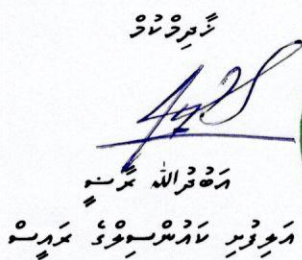 ޚާދިމުކުމް
އަބުދުﷲ ރާޝީ
އަލިފުށި ކައުންސިލްގެ ރައީސް